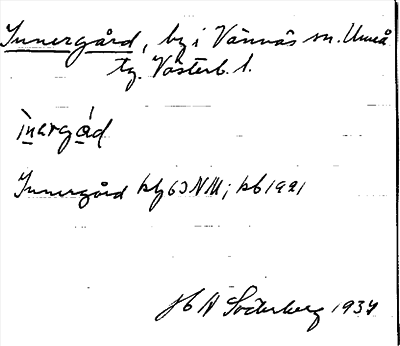 Innergård, by i Vännäs sn. Umeå
tg. Västerb. l.
ìnergá̱d
Innergård kbf 63 NM; kb 1921
H A Söderberg 1934